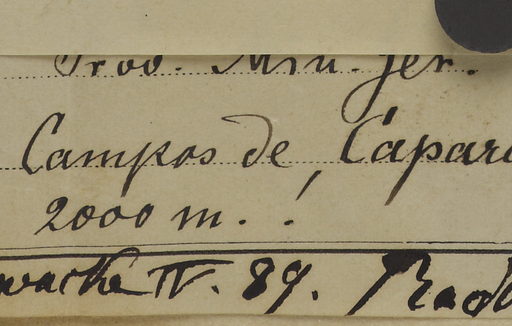 Prov. Min. Ger.
Campos de Capara
2000 m. !
wacke IV. 89.